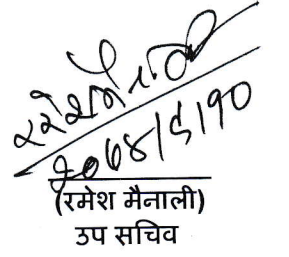 २०७४/९/१०
(रमेश मैनाली)
उप सचिव